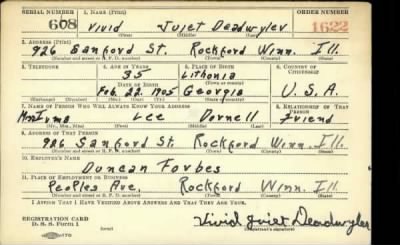 SERIAL NUMBER 1. NAME (Print) ORDER NUMBER
608 Vivid Juiet Deadwyler 1622
(First) (Middle) (Last)
2. ADDRESS (Print)
926 Sanford St. Rockford Winn. Ill.
(Number and street or R. F. D. number) (Town) (County) (State)
3. TELEPHONE 4. AGE IN YEARS 5. PLACE OF BIRTH 6. COUNTRY OF CITIZENSHIP
35 Lithonia
DATE OF BIRTH (Town or county)
Feb. 22. 1905 Georgia U.S.A.
(Exchange) (Number) (Mo.) (Day) (Yr.) (State or country)
7. NAME OF PERSON WHO WILL ALWAYS KNOW YOUR ADDRESS 8. RELATIONSHIP OF THAT PERSON
Mrs Irma Lee Dornell Friend
(Mr., Mrs., Miss) (First) (Middle) (Last)
9. ADDRESS OF THAT PERSON
926 Sanford St. Rockford Winn. Ill.
(Number and street or R. F. D. number) (Town) (County) (State)
10. EMPLOYER'S NAME
Duncan Forbes
11. PLACE OF EMPLOYMENT OR BUSINESS
Peoples Ave. Rockford Winn. Ill.
(Number and street or R. F. D. number) (Town) (County) (State)
I AFFIRM THAT I HAVE VERIFIED ABOVE ANSWERS AND THAT THEY ARE TRUE.
REGISTRATION CARD
D. S. S. Form 1 Vivid Juiet Deadwyler
(Registrant's signature)